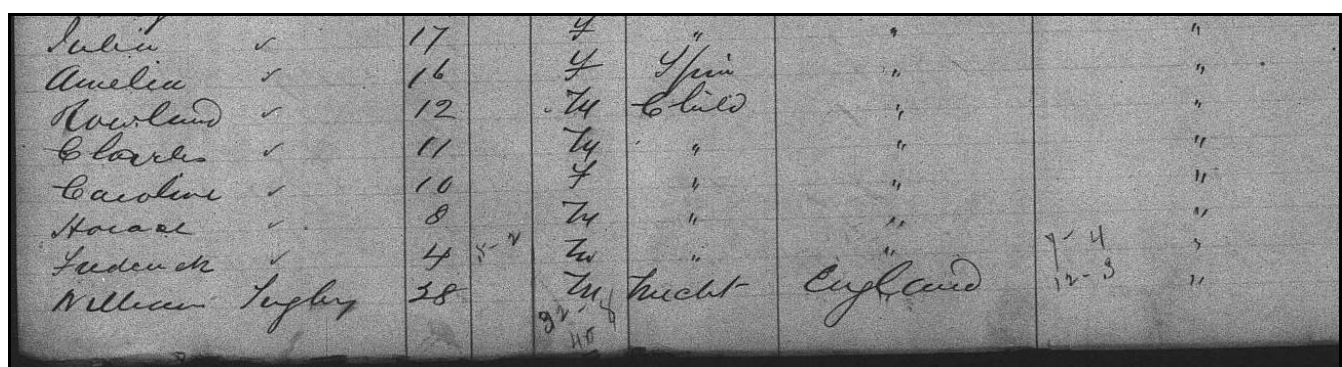 Julia ✓ 17 F " " "
Amelia ✓ 16 F Spin " "
Rowland ✓ 12 M Child " "
Charles ✓ 11 M " " "
Caroline ✓ 10 F " " "
Horace ✓ 8 M " " "
Frederick ✓ 4 5-2 M " " 9-4 "
William 38 M England 12-3 "
40